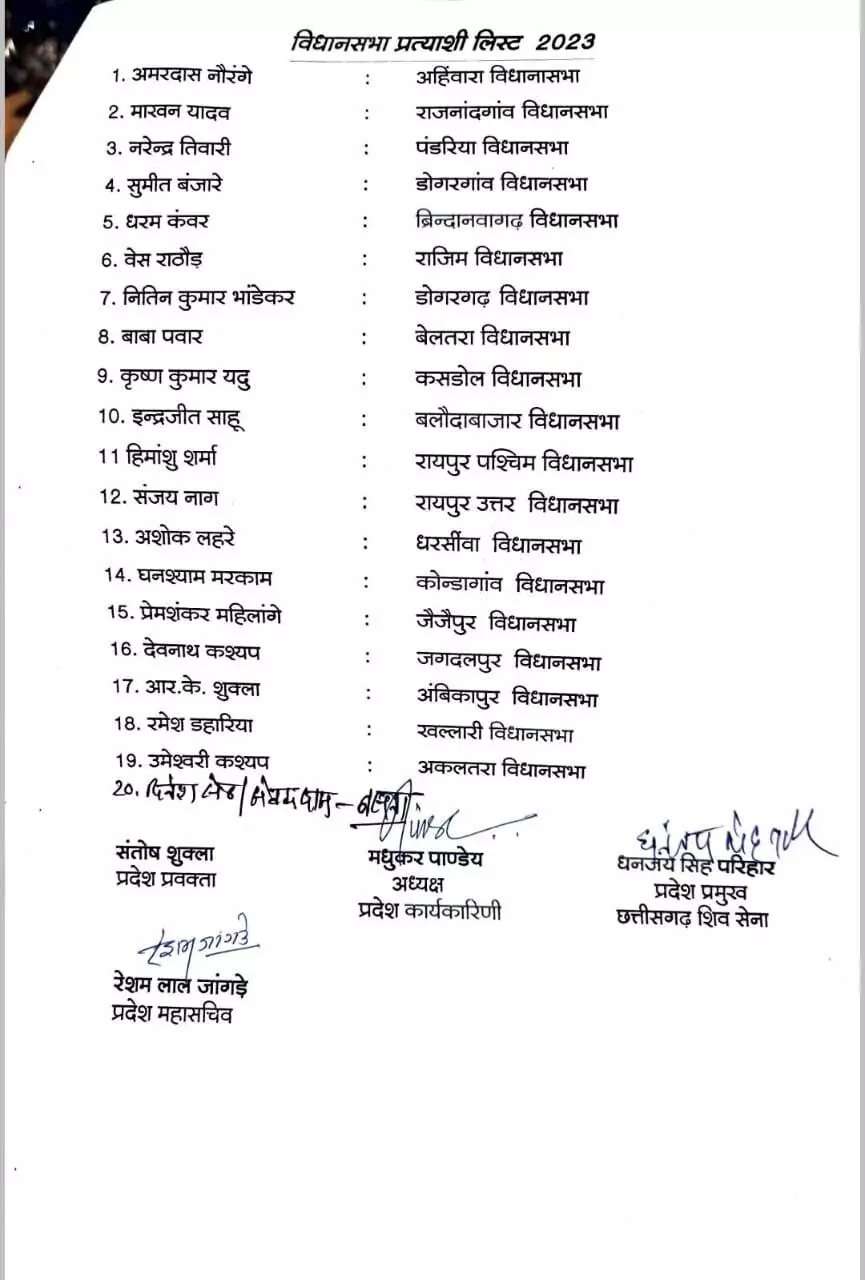 विधानसभा प्रत्याशी लिस्ट 2023
1. अमरदास नौरंगे : अहिंवारा विधानासभा
2. माखन यादव : राजनांदगांव विधानसभा
3. नरेन्द्र तिवारी : पंडरिया विधानसभा
4. सुमीत बंजारे : डोगरगांव विधानसभा
5. धरम कंवर : ब्रिन्दानवागढ़ विधानसभा
6. वेस राठौड़ : राजिम विधानसभा
7. नितिन कुमार भांडेकर : डोगरगढ़ विधानसभा
8. बाबा पवार : बेलतरा विधानसभा
9. कृष्ण कुमार यदु : कसडोल विधानसभा
10. इन्द्रजीत साहू : बलौदाबाजार विधानसभा
11 हिमांशु शर्मा : रायपुर पश्चिम विधानसभा
12. संजय नाग : रायपुर उत्तर विधानसभा
13. अशोक लहरे : धरसींवा विधानसभा
14. घनश्याम मरकाम : कोन्डागांव विधानसभा
15. प्रेमशंकर महिलांगे : जैजैपुर विधानसभा
16. देवनाथ कश्यप : जगदलपुर विधानसभा
17. आर.के. शुक्ला : अंबिकापुर विधानसभा
18. रमेश डहारिया : खल्लारी विधानसभा
19. उमेश्वरी कश्यप : अकलतरा विधानसभा
20. दिनेश
संतोष शुक्ला मधुकर पाण्डेय धनंजय सिंह परिहार
प्रदेश प्रवक्ता अध्यक्ष प्रदेश प्रमुख
प्रदेश कार्यकारिणी छत्तीसगढ़ शिव सेना
रेशम जांगडे
रेशम लाल जांगड़े
प्रदेश महासचिव